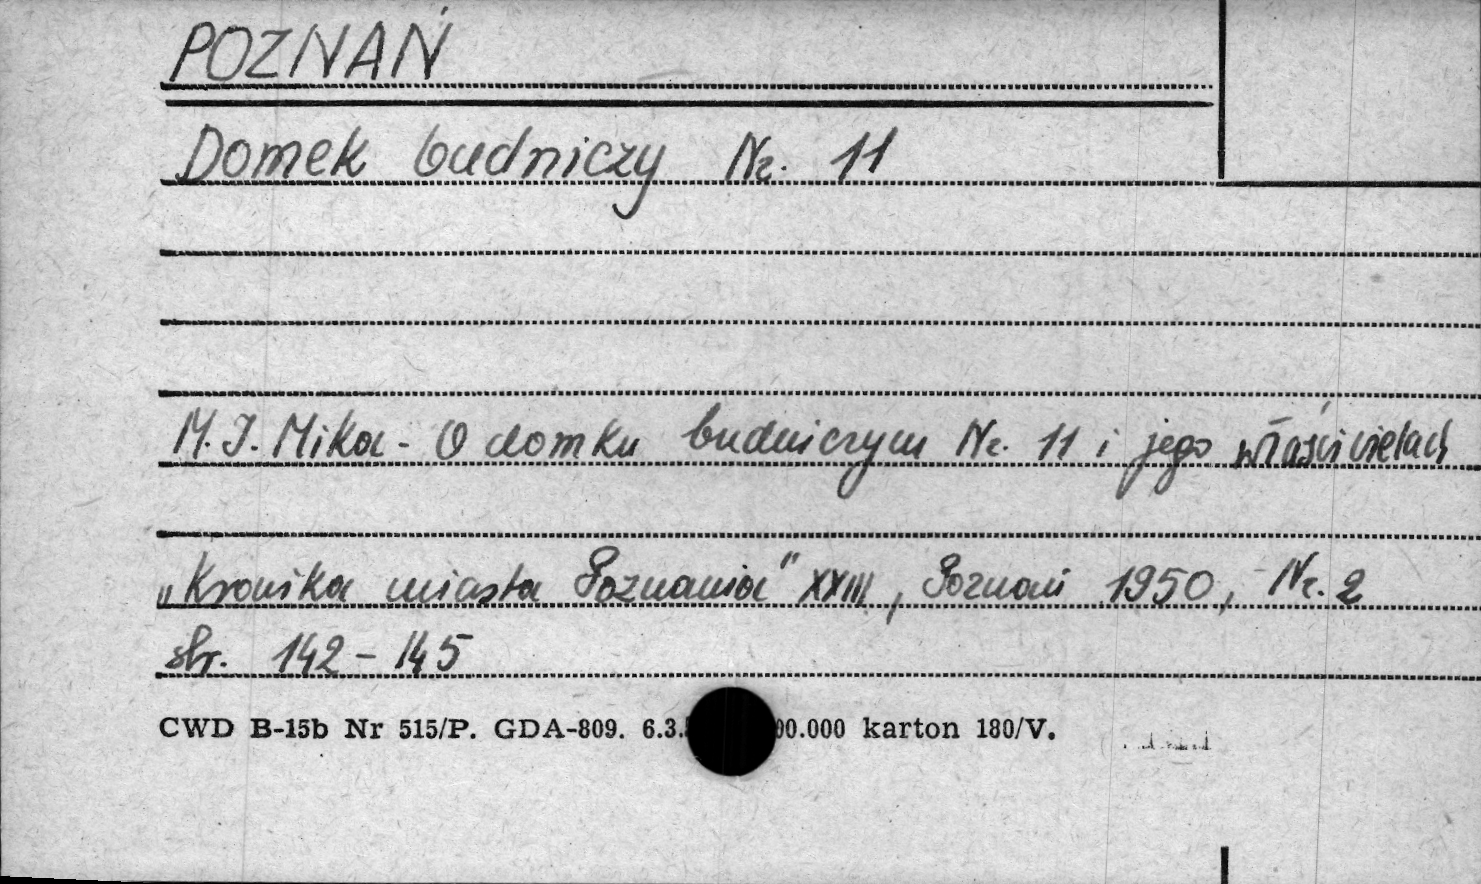 POZNAŃ
Domek budniczy Nr. 11
M. J. Mika - O domku budniczym Nr. 11 i jego właścicielach
„Kronika miasta Poznania" XXIII, Poznań 1950, Nr. 2
str. 142 - 145
CWD B-15b Nr 515/P. GDA-809. 6.3. 00.000 karton 180/V.